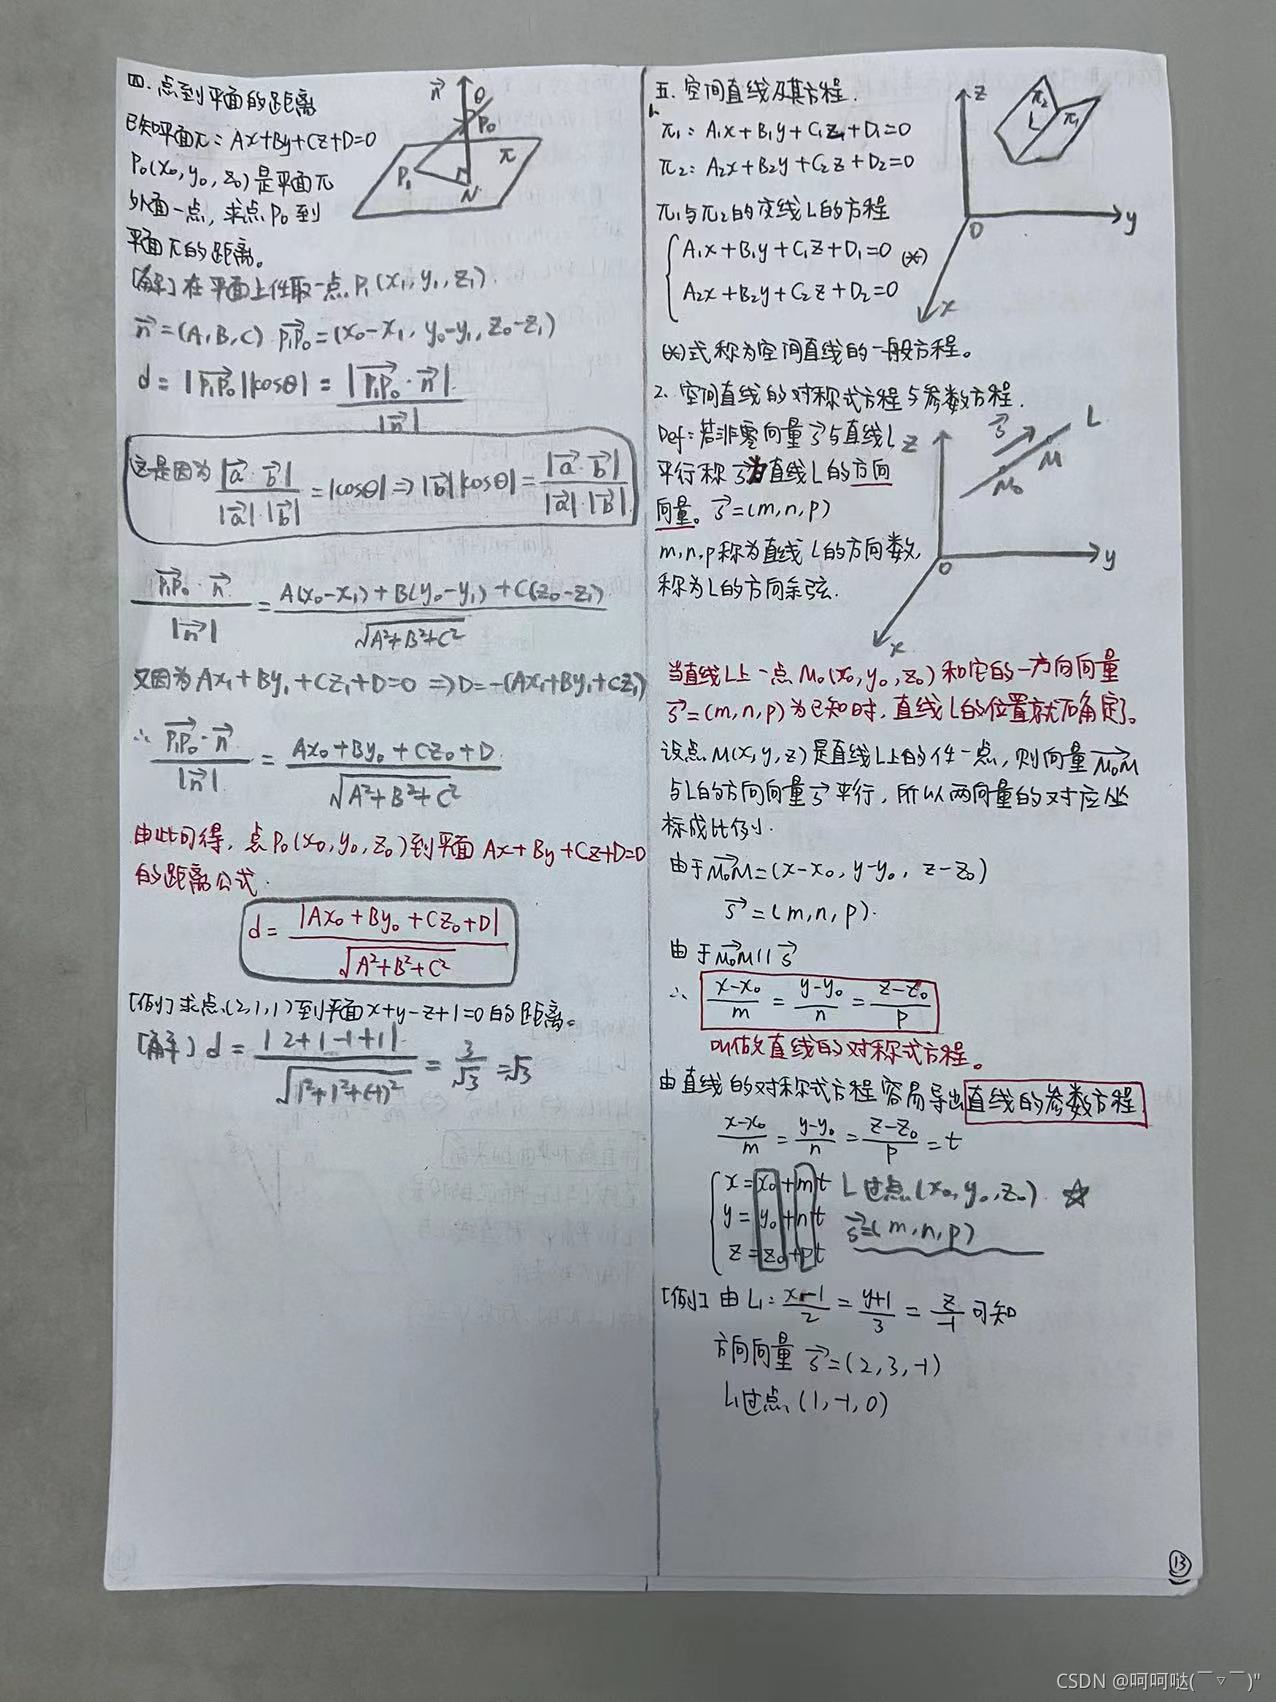 四.点到平面的距离
已知平面π: Ax+By+Cz+D=0
P₀(x₀,y₀,z₀)是平面π
外面一点,求点P₀到
平面π的距离。
n→ θ P₀ P₁ N π
[解]在平面上任取一点P₁(x₁,y₁,z₁).
n→=(A,B,C) P₁P₀→=(x₀-x₁, y₀-y₁, z₀-z₁)
d=|P₁P₀→||cosθ|=|P₁P₀→·n→|/|n→|
这是因为 |a→·b→|/|a→|·|b→|=|cosθ|⇒|b→||cosθ|=|a→·b→|/|a→|·|b→|
P₁P₀→·n→/|n→|=A(x₀-x₁)+B(y₀-y₁)+C(z₀-z₁)/√A²+B²+C²
又因为Ax₁+By₁+Cz₁+D=0⇒D=-(Ax₁+By₁+Cz₁)
∴ P₁P₀→·n→/|n→|=Ax₀+By₀+Cz₀+D/√A²+B²+C²
由此可得,点P₀(x₀,y₀,z₀)到平面Ax+By+Cz+D=0
的距离公式.
d=|Ax₀+By₀+Cz₀+D|/√A²+B²+C²
[例]求点(2,1,1)到平面x+y-z+1=0的距离。
[解] d=|2+1-1+1|/√1²+1²+(-1)²=3/√3=√3
五.空间直线及其方程.
1.
π₁: A₁x+B₁y+C₁z+D₁=0
π₂: A₂x+B₂y+C₂z+D₂=0
π₁与π₂的交线L的方程
{A₁x+B₁y+C₁z+D₁=0 (*)
A₂x+B₂y+C₂z+D₂=0
z π₂ L π₁ O y x
(*)式称为空间直线的一般方程。
2.空间直线的对称式方程与参数方程.
Def:若非零向量s→与直线L
平行称s→为直线L的方向
向量。s→=(m,n,p)
m,n,p称为直线L的方向数,
称为L的方向余弦.
z s→ L M M₀ O y x
当直线L上一点M₀(x₀,y₀,z₀)和它的一方向向量
s→=(m,n,p)为已知时,直线L的位置就确定了。
设点M(x,y,z)是直线L上的任一点,则向量M₀M→
与L的方向向量s→平行,所以两向量的对应坐
标成比例.
由于M₀M→=(x-x₀, y-y₀, z-z₀)
s→=(m,n,p).
由于M₀M→//s→
∴ x-x₀/m=y-y₀/n=z-z₀/p
叫做直线的对称式方程。
由直线的对称式方程容易导出直线的参数方程
x-x₀/m=y-y₀/n=z-z₀/p=t
{x=x₀+mt L过点(x₀,y₀,z₀). ☆
y=y₀+nt s→=(m,n,p)
z=z₀+pt
[例]由L₁: x-1/2=y+1/3=z/-1可知
方向向量s→=(2,3,-1)
L₁过点(1,-1,0)
13
CSDN @呵呵哒(￣▽￣)"